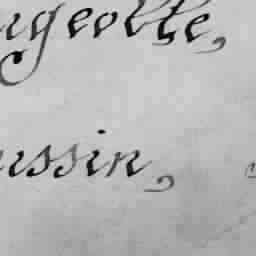 ugeotte,
ussin,